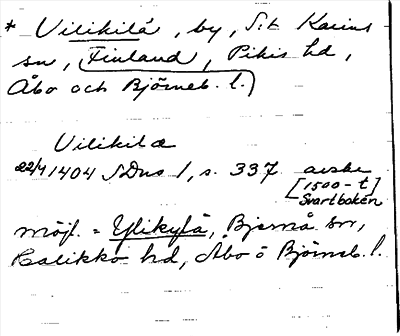 * Vilikilä, by, S:t Karins
sn, Finland, Pikis hd,
Åbo och Björneb. l.)
Vilikilæ
22/4 1404 SDns 1, s. 337 avskr
[1500-t]
Svartboken
möjl. = Ylikylä, Bjärnå sn,
Halikko hd, Åbo o Björneb. l.